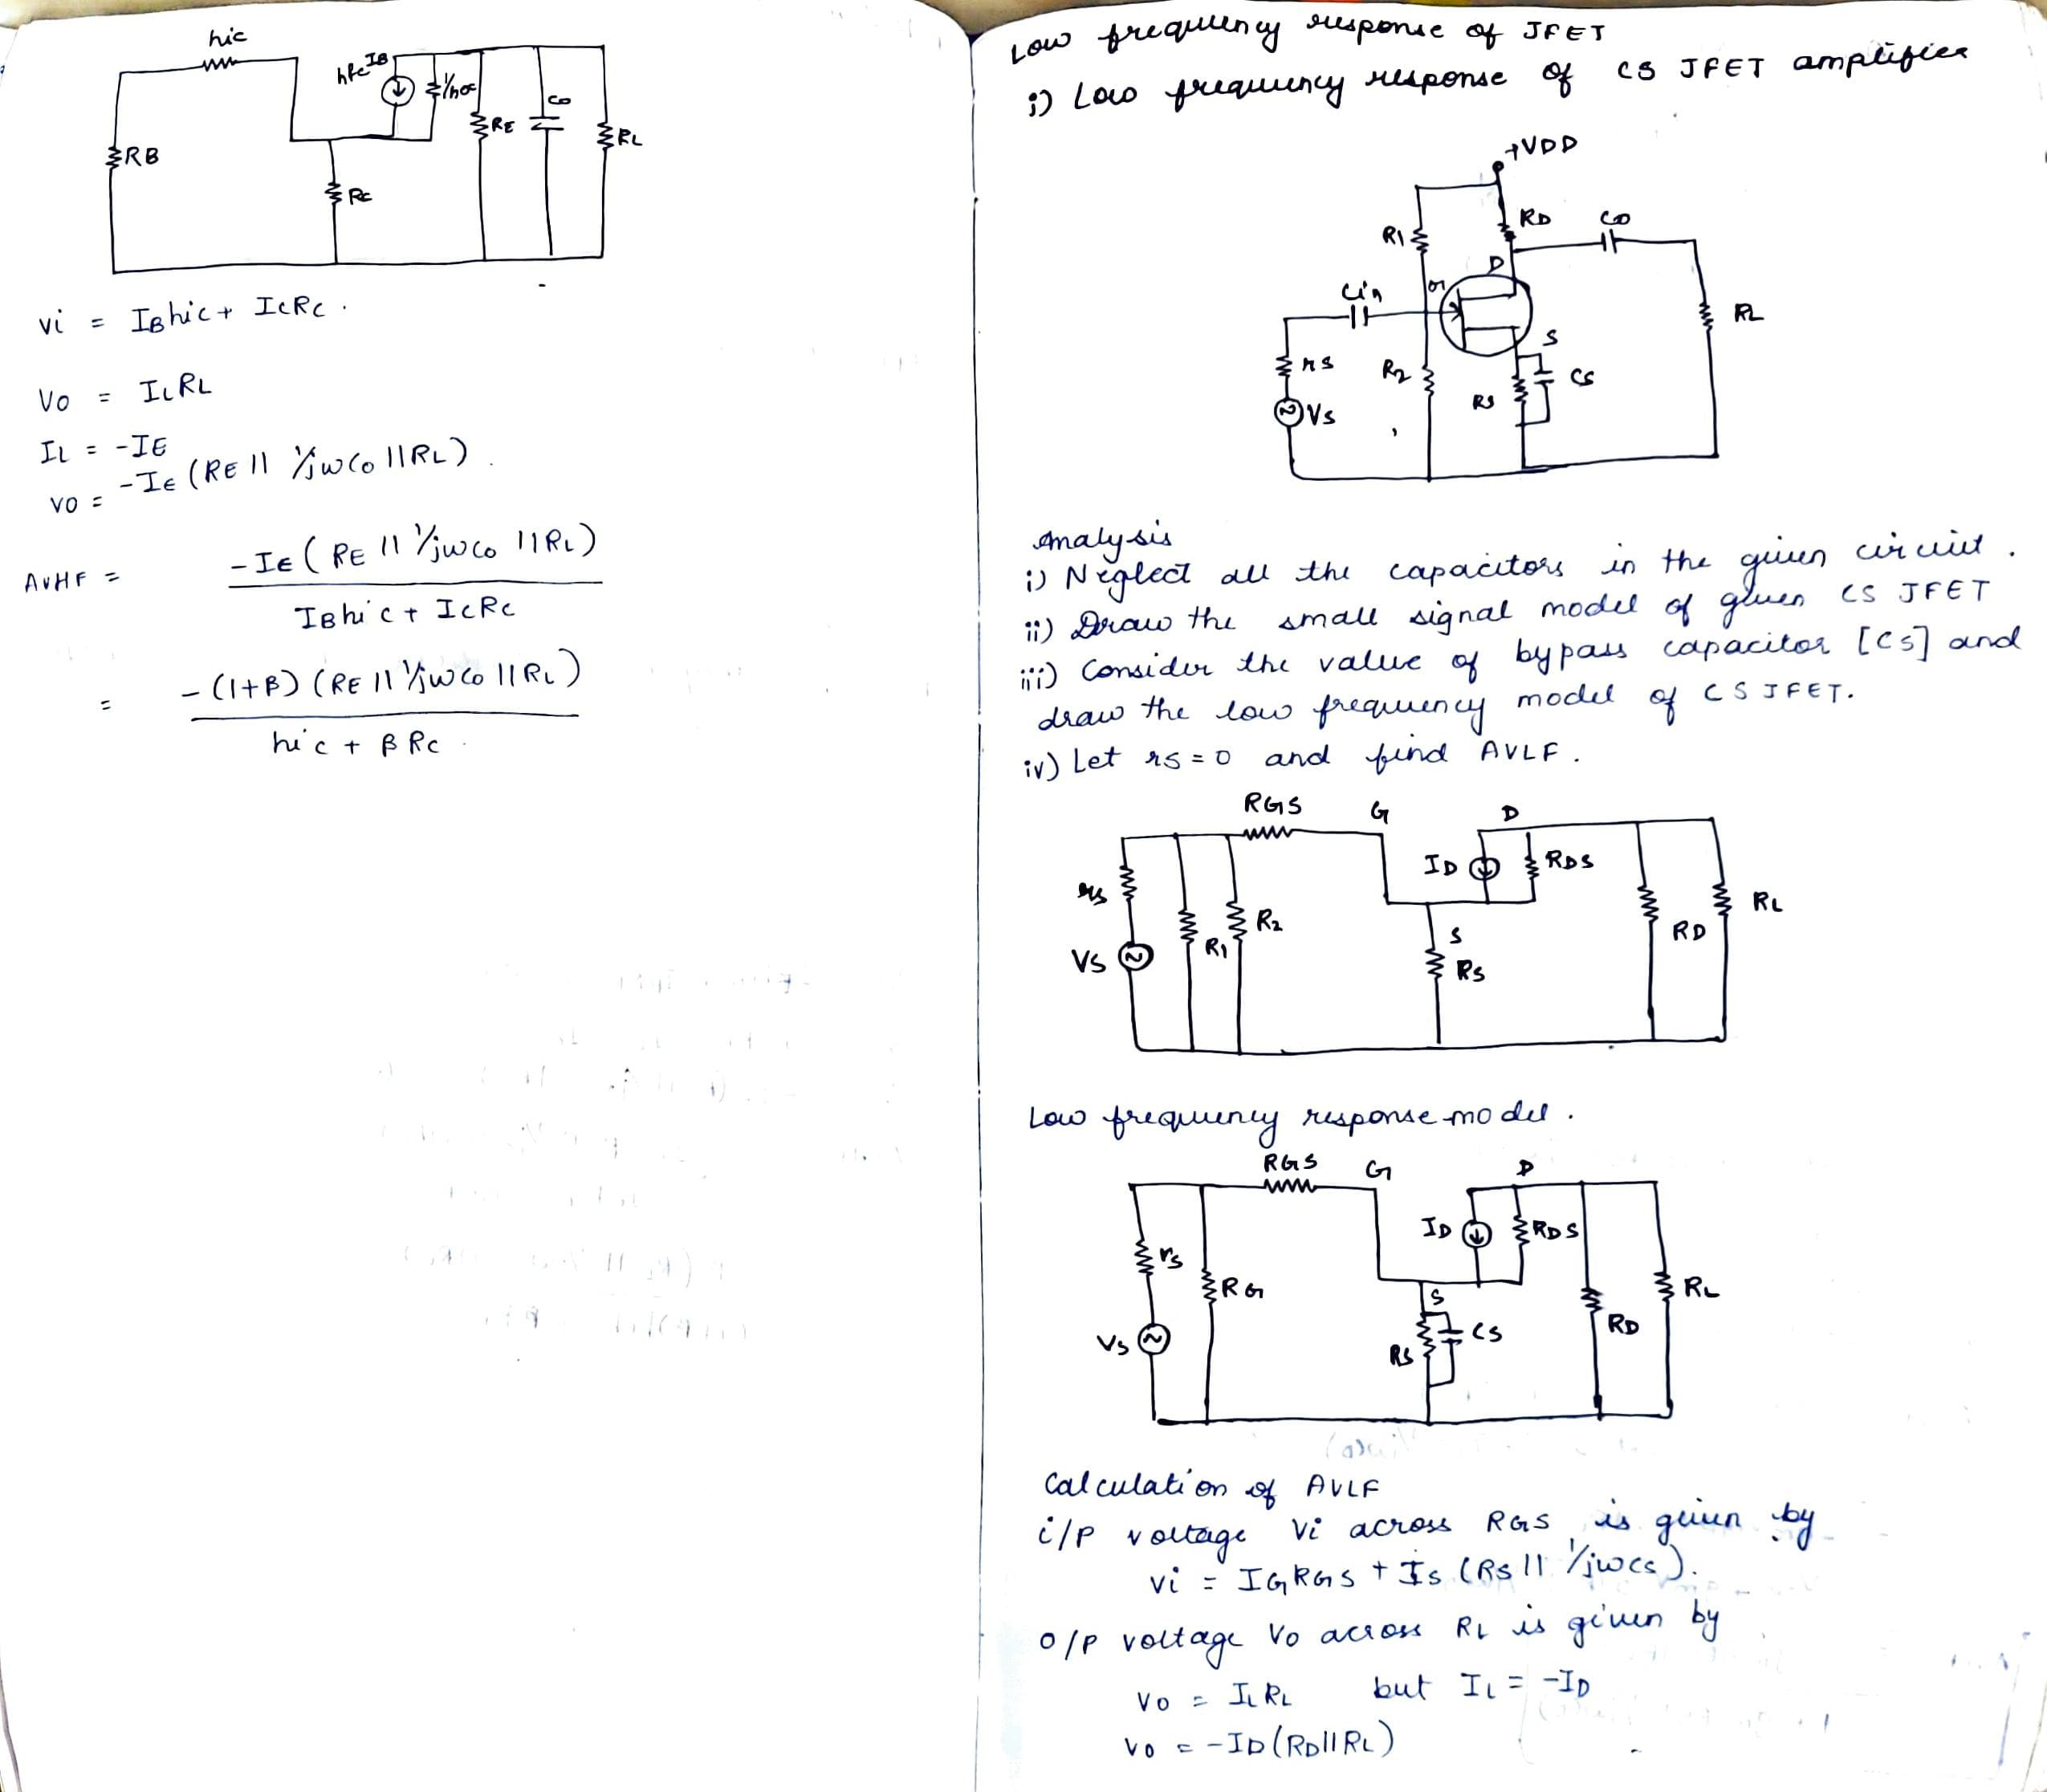 hic
hfeIB
1/hoc
RE
Co
RL
RB
RC
vi = IBhic + ICRC.
Vo = ILRL
IL = -IE
vo = -IE (RE || 1/jwCo || RL).
AVHF = -IE ( RE || 1/jwco || RL)
IBhic + ICRC
= -(1+β) (RE || 1/jwco || RL)
hic + βRC
Low frequency response of JFET
i) Low frequency response of CS JFET amplifier
+VDD
R1
RD
Co
D
Cin
G
RL
S
rs
R2
RS
CS
Vs
Analysis
i) Neglect all the capacitors in the given circuit.
ii) Draw the small signal model of given CS JFET
iii) Consider the value of bypass capacitor [CS] and
draw the low frequency model of CS JFET.
iv) Let rs = 0 and find AVLF.
RGS
G
D
ID
RDS
rs
R2
RL
R1
S
RD
VS
RS
Low frequency response model.
RGS
G
D
ID
RDS
rs
RG
S
RL
CS
RD
Vs
RS
Calculation of AVLF
i/p voltage Vi across RGS is given by
vi = IGRGS + IS (RS || 1/jwcs).
o/p voltage Vo across RL is given by
Vo = ILRL but IL = -ID
Vo = -ID(RD||RL)